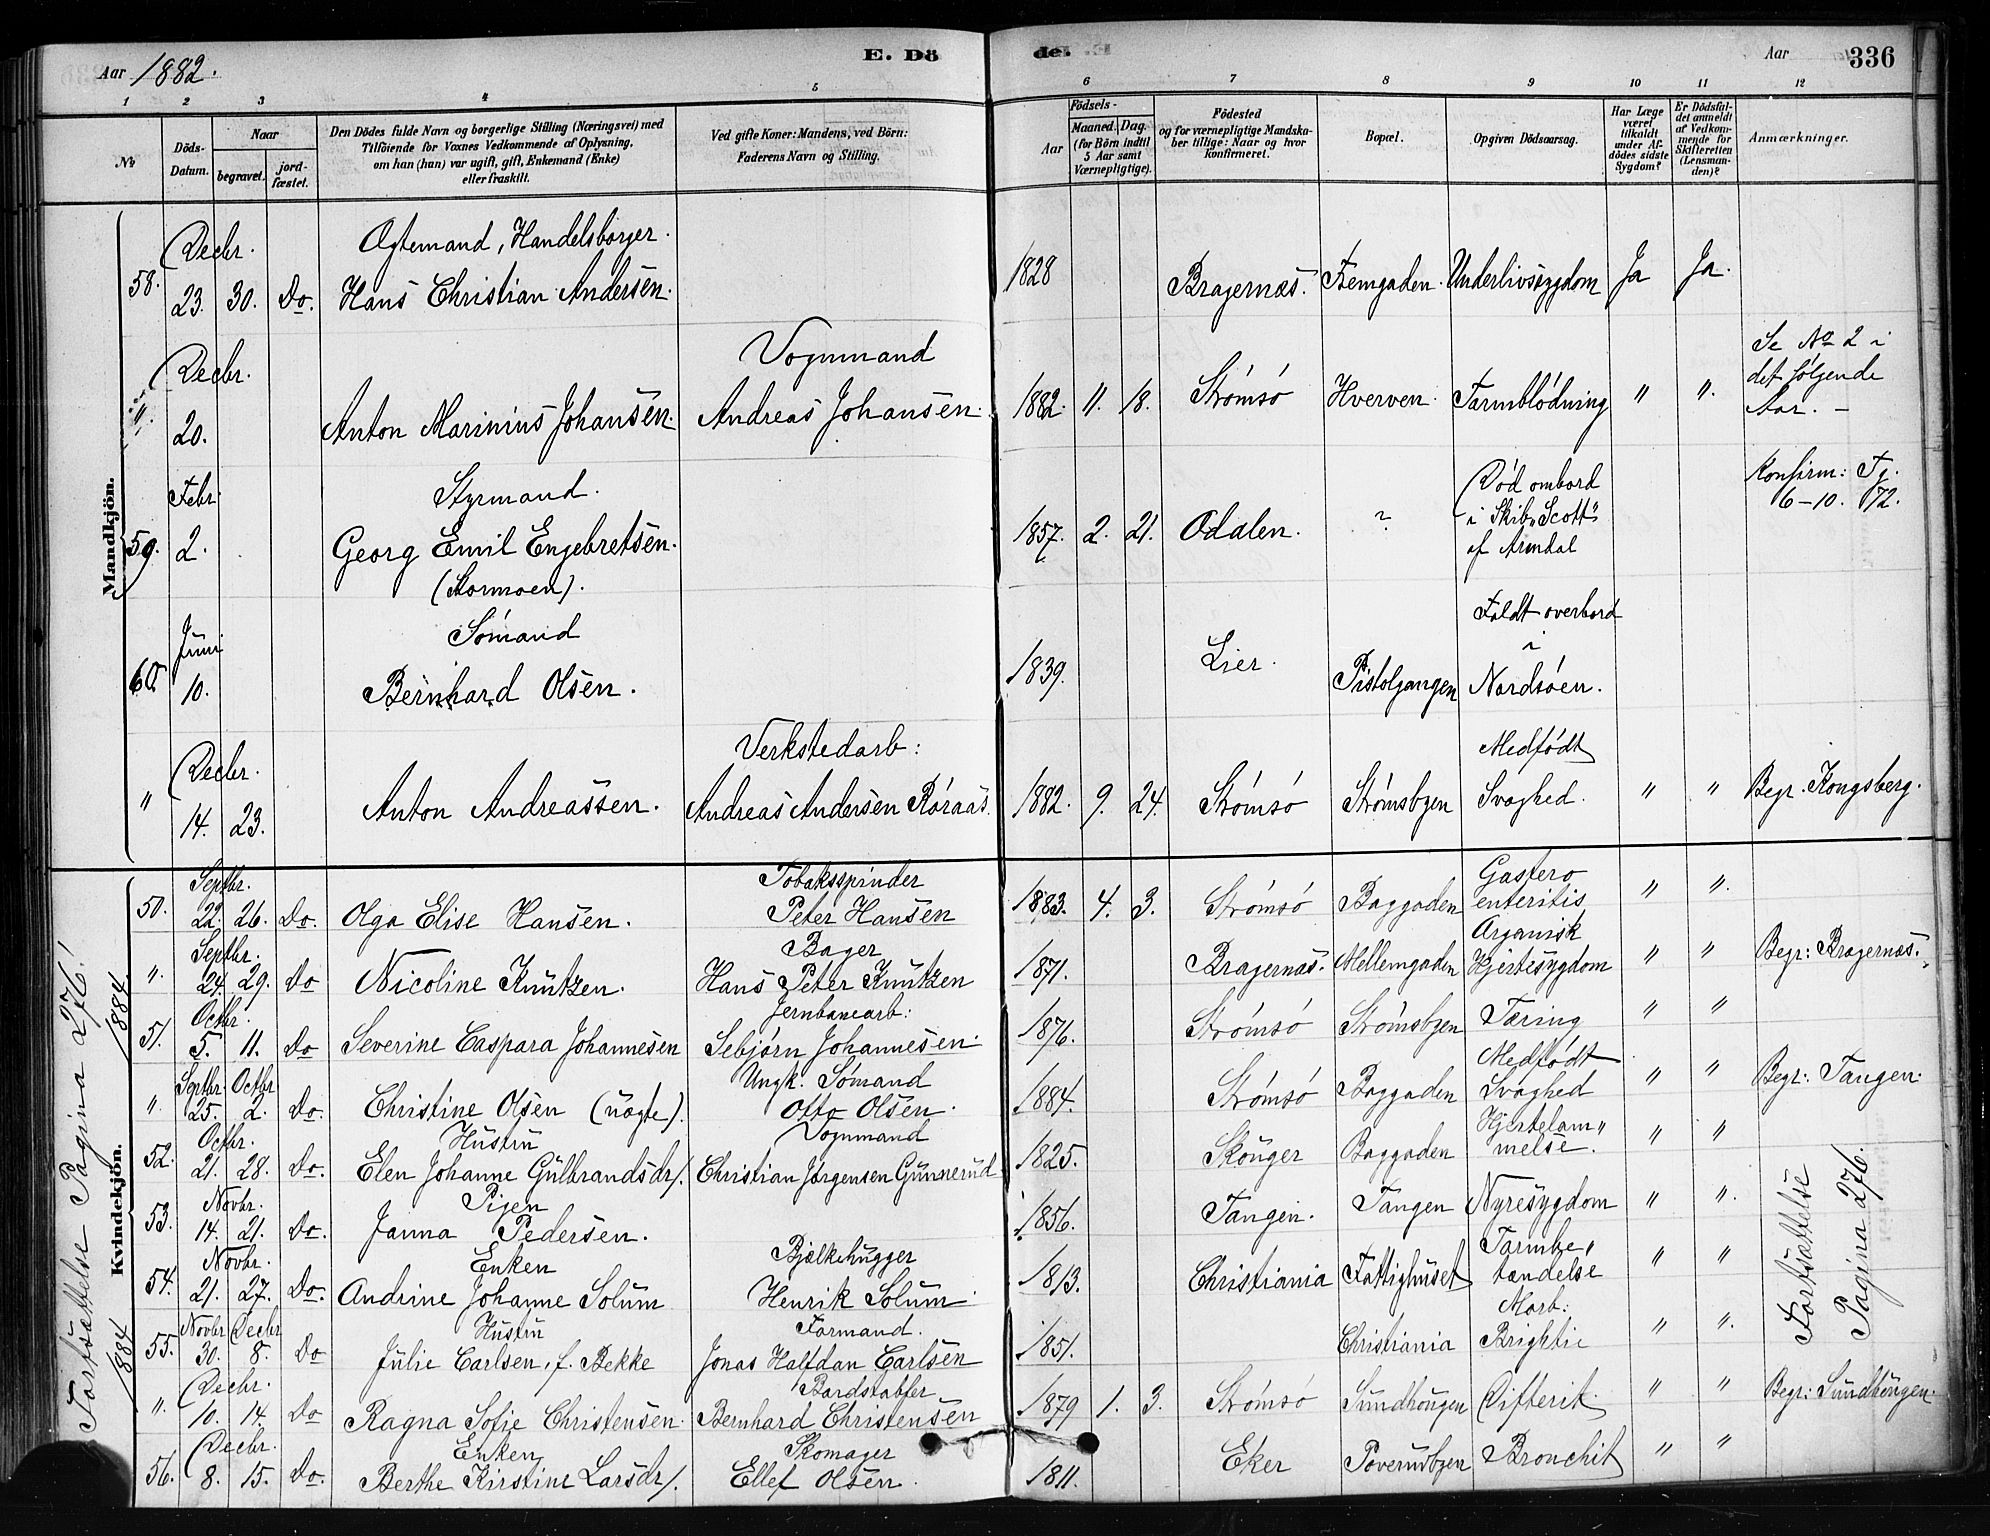 Aar 1882.
E. Dö
de.
Aar
336
1 2 3 4 5 6 7 8 9 10 11 12
No
Döds-Datum.
Naar
begravet.
jord-fæstet.
Den Dödes fulde Navn og borgerlige Stilling (Næringsvei) med
Tilföiende for Voxnes Vedkommende af Oplysning,
om han (hun) var ugift, gift, Enkemand (Enke)
eller fraskilt.
Ved gifte Koner: Mandens, ved Börn:
Faderens Navn og Stilling.
Födsels-
Aar
Maaned. Dag.
(for Börn indtil
5 Aar samt
Værnepligtige).
Födested
og for værnepligtige Mandska-
ber tillige: Naar og hvor
konfirmeret.
Bopæl.
Opgiven Dödsaarsag.
Har Læge
været
tilkaldt
under Af-
dödes sidste
Sygdom?
Er Dödsfal-
det anmeldt
af Vedkom-
mende for
Skifteretten
(Lensman-
den)?
Anmærkninger.
Mandkjön.
Decbr. Ægtemand, Handelsborger.
58. 23. 30. Do. Hans Christian Andersen. 1828 Bragernæs. Femgaden. Underlivssygdom Ja Ja.
Decbr. Vognmand Se No 2 i
" 20. Anton Marinius Johansen. Andreas Johansen. 1882. 11. 18. Strömsö Hverven. Tarmblödning " ". det følgende
Aar. –
Febr. Styrmand. Död ombord Konfirm:
59. 2. Georg Emil Engebretsen. 1857. 2. 21. Odalen. ? i Skib "Scott" 6–10. 72.
(Stormoen). af Arendal
Juni Sömand Faldt overbord
i
60. 10. Bernhard Olsen. 1839. Lier. Pistolgangen Nordsöen.
Decbr. Verkstedarb: Medfödt
" 14. 23. Anton Andreassen. Andreas Andersen Röraas. 1882. 9. 24. Strömsö Strömsbyen Svaghed. " " Begr. Kongsberg.
Kvindekjön.
Fortsættelse Pagina 276!
1884.
1884
Septbr. Tobaksspinder Gastero
50. 22. 26. Do. Olga Elise Hansen. Peter Hansen 1883. 4. 3. Strömsö Baggaden enteritis " ".
Septbr. Bager Organisk
". 24. 29. Do Nicoline Knutzen. Hans Peter Knutzen 1871. Bragernæs. Mellemgaden Hjertesygdom " " Begr: Bragernæs.
Octbr. Jernbanearb:
51. 5. 11. Do Severine Caspara Johannesen Sebjörn Johannesen. 1876. Strömsö Strömsbyen Tæring " "
Septbr. Octbr Ungk. Sömand Medfödt
". 25. 2. Do. Christine Olsen (uægte). Otto Olsen. 1884. Strömsö Baggaden Svaghed " " Begr: Tangen.
Octbr. Hustru Vognmand Hjertelam"
52. 21. 28. Do. Elen Johanne Gulbrandsdr/. Christian Jörgensen Gunnerud 1825. Skouger Baggaden melse. " "
Novbr. Pigen
53. 14. 21. Do. Janna Pedersen. 1856. Tangen. Tangen Nyresygdom " ".
Novbr. Enken Bjelkehugger Tarmbe"
54. 21. 27. Do. Andrine Johanne Solum Henrik Solum. 1813. Christiania Fattighuset tændelse " "
Novbr Decbr Hustru Formand. Morb:
55. 30. 8. Do Julie Carlsen, f. Bekke Jonas Halfdan Carlsen 1851. Christiania Brightii " ".
Decbr.
". 10. 14. Do Ragna Sofie Christensen. Bernhard Christensen 1879 1. 3. Strömsö Sundhougen Difterit. " " Begr: Sundhougen.
Decbr. Enken Skomager
56. 8. 15. Do. Berthe Kirstine Larsdr/. Ellef Olsen. 1811. Eker Bronchit " "
Fortsættelse
Pagina 276.